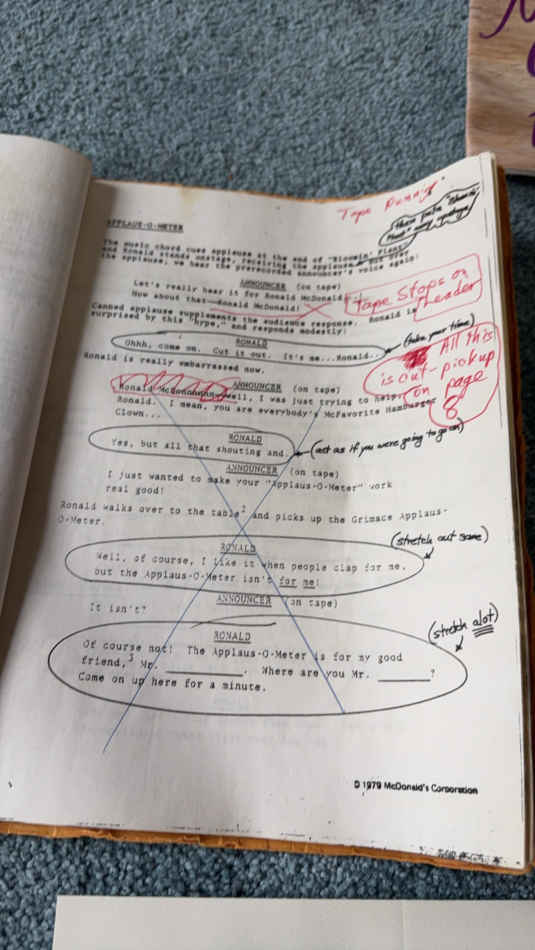 Tape Running
APPLAUSE-O-METER
The music chord cues applause at the end of "Bloomin' Plant"
and Ronald stands onstage, receiving the applause. But over
the applause, we hear the prerecorded announcer's voice again!
ANNOUNCER (on tape)
Let's really hear it for Ronald McDonald!
Now about that Ronald McDonald!
Tape Stops on
Header
Canned applause supplements the audience response. Ronald is
surprised by this "hype," and responds modestly!
RONALD
(take your time)
Ohhh, come on. Cut it out. It's me...Ronald.
All this
is out-pick up
on page
8
Ronald is really embarrassed now.
ANNOUNCER (on tape)
Ronald Well, I was just trying to help,
Ronald. I mean, you are everybody's McFavorite Hamburger
Clown...
RONALD
Yes, but all that shouting and.
(act as if you were going to go on)
ANNOUNCER (on tape)
I just wanted to make your "Applaus-O-Meter" work
real good!
Ronald walks over to the table2 and picks up the Grimace Applaus-
O-Meter.
(stretch out some)
RONALD
Well, of course, I like it when people clap for me,
but the Applaus-O-Meter isn't for me!
ANNOUNCER (on tape)
It isn't?
(stretch alot)
RONALD
Of course not! The Applaus-O-Meter is for my good
friend,3 Mr. ________. Where are you Mr. ______?
Come on up here for a minute.
© 1979 McDonald's Corporation